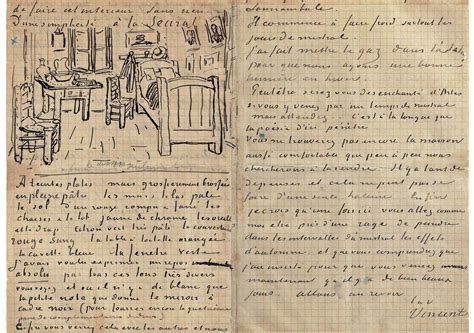 de faire cet interieur sans rien
D'une simplicité à la Seurat.
A teintes plates mais grossierement brossées
en pleine pâte les murs lilas pale
le sol d'un rouge rompu & fané les
chaises & le lit jaune de chrome les oreillers
et le drap citron vert très pâle la couverture
rouge sang la table à toilette orangée
la cuvette bleue la fenêtre verte
J'avais voulu exprimer un repos
absolu par tous ces tons très divers
vous voyez et où il n'y a de blanc que
la petite note que donne le miroir à
cadre noir (pour fourrer encore la quatrième
paire de complémentaires dedans)
Enfin vous verrez cela avec les autres et nous
somnambule.
Il commence à faire froid surtout les
jours de mistral
j'ai fait mettre le gaz dans l'atelier
pour que nous ayons une bonne
lumière en hiver.
Peut être serez vous desenchanté d'Arles
si vous y venez par un temps de mistral
mais attendez.. C'est à la longue que
la poésie d'ici pénètre
vous ne trouverez pas encore la maison
aussi comfortable que peu à peu nous
chercherons à la rendre. Il y a tant de
dépenses et cela ne peut pas se
faire d'une seule haleine Enfin
je crois qu'une fois ici vous allez comme
moi etre pris d'une rage de peindre
dans les intervalles du mistral les effets
d'automne et que vous comprendrez que
j'aie insisté pour que vous veniez
maintenant qu'il y a de bien beaux
jours allons au revoir
t. à v.
Vincent